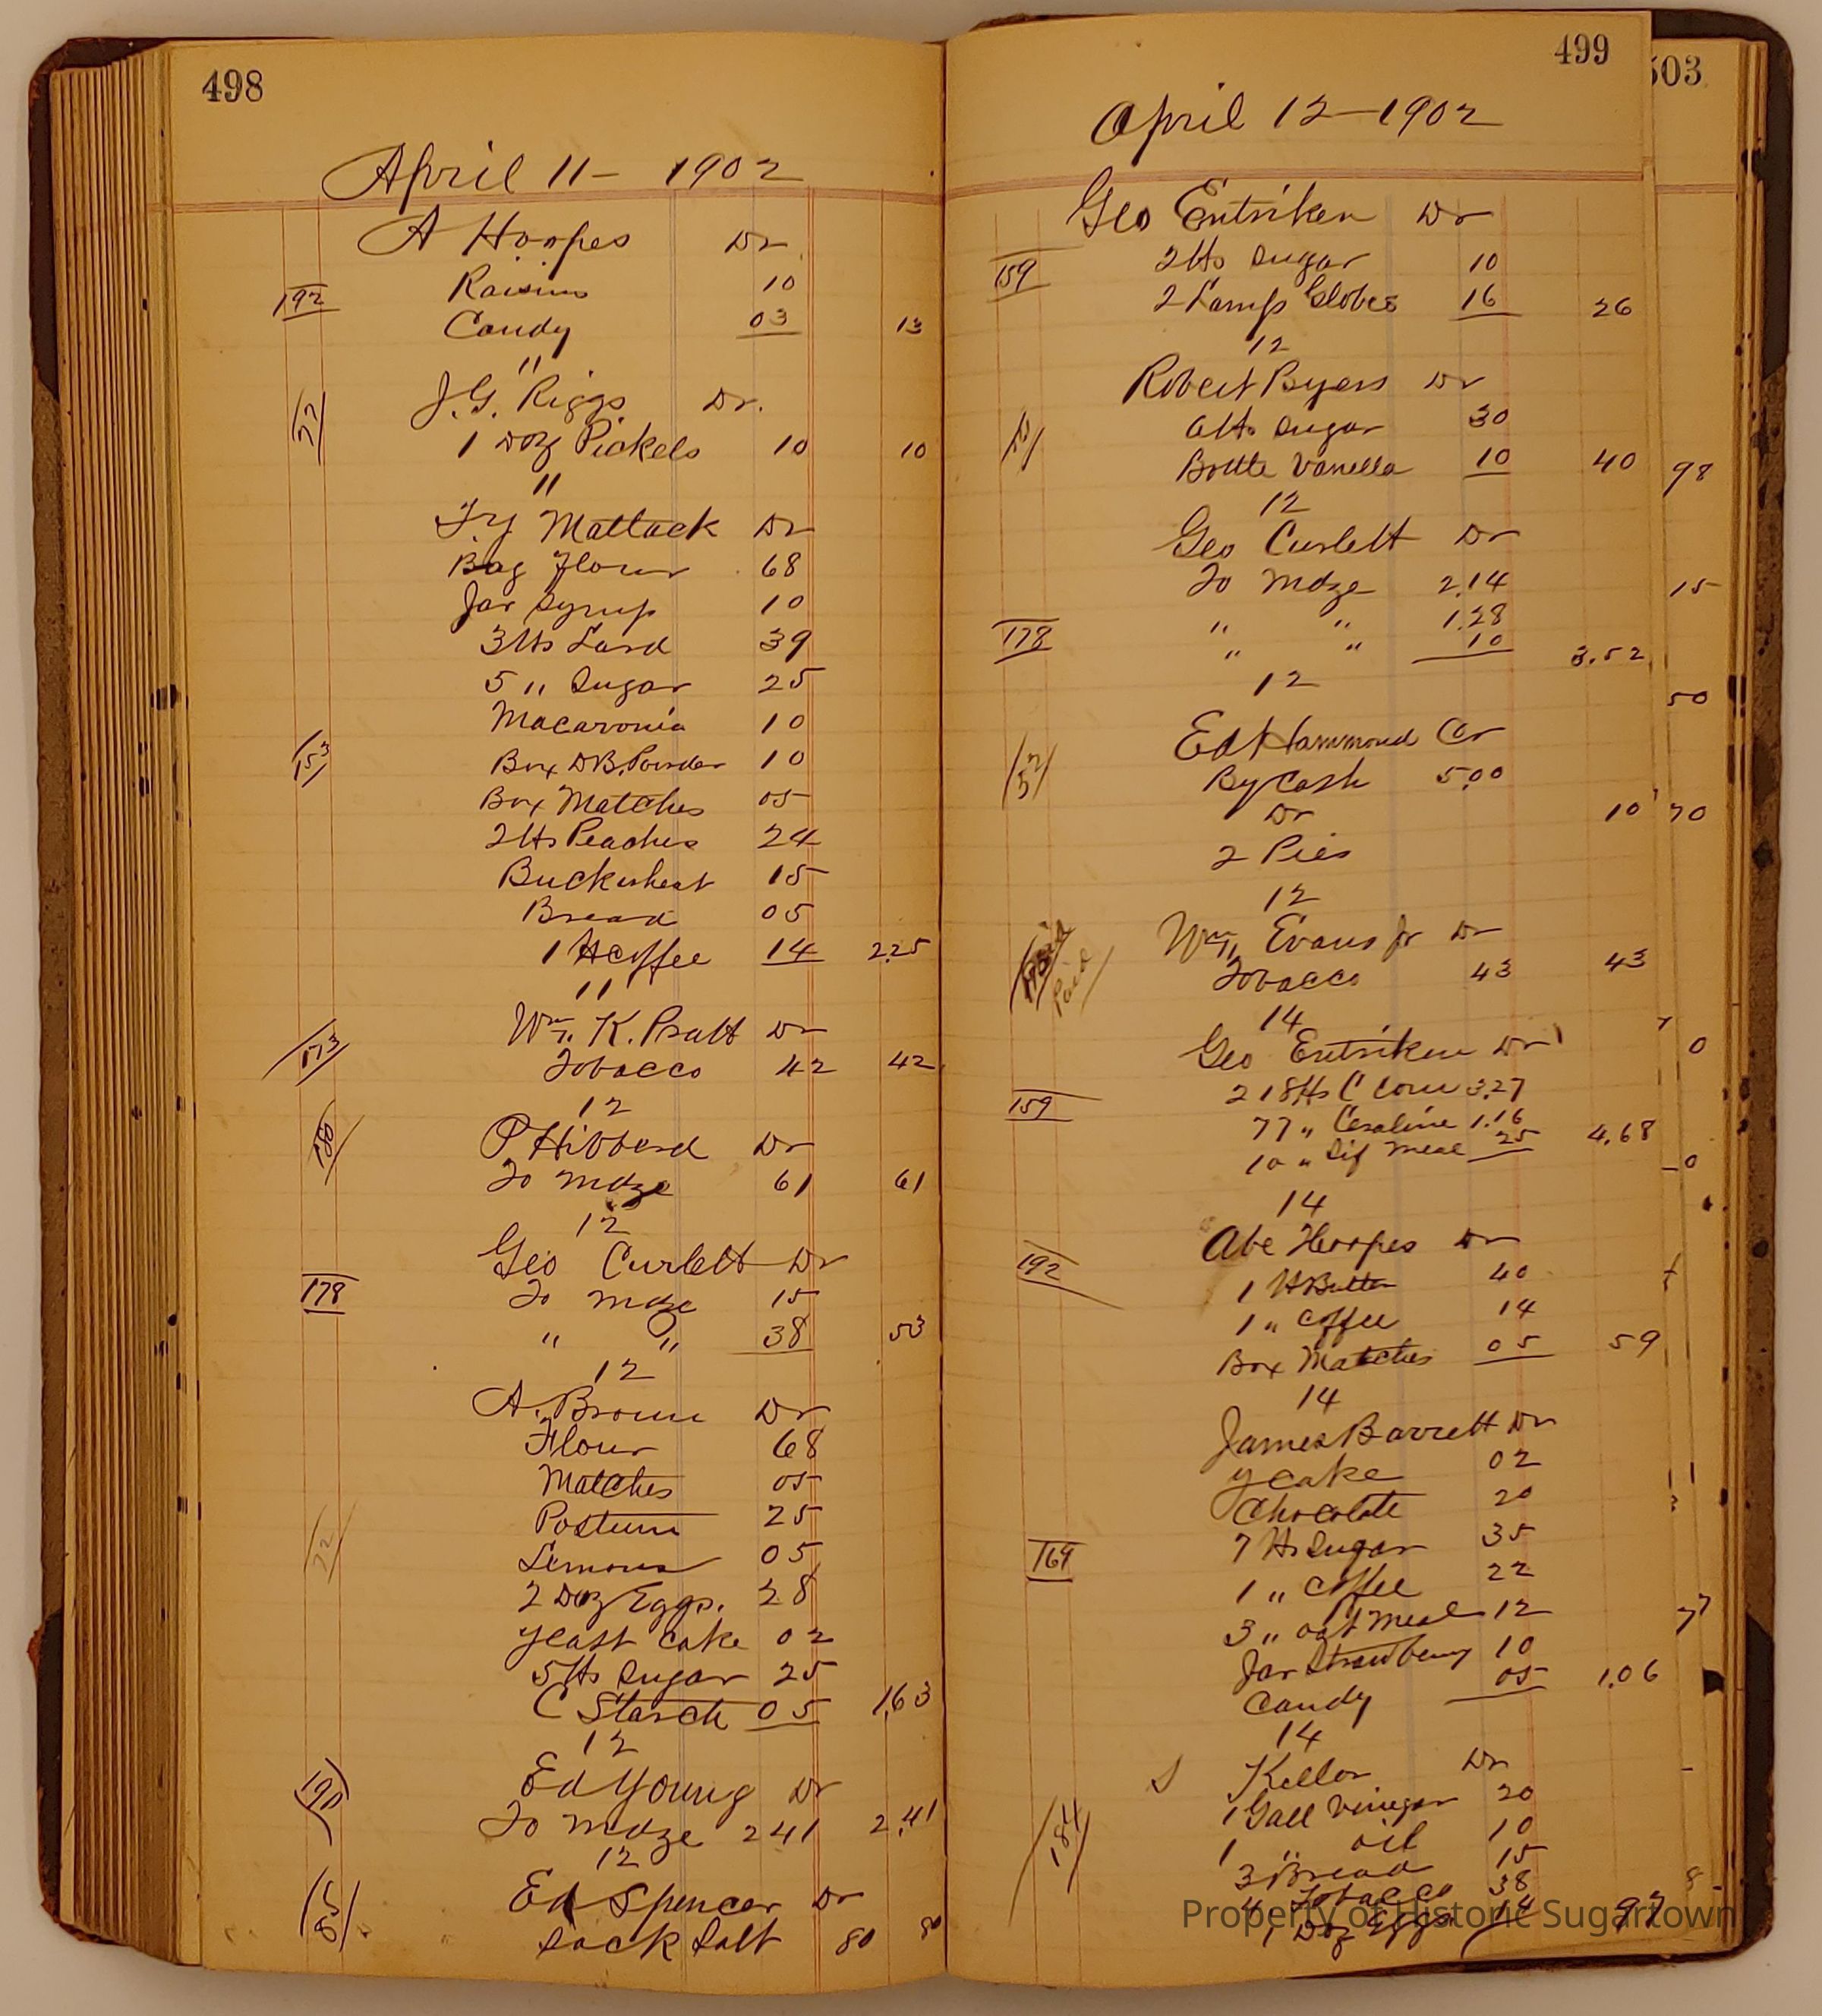 498
April 11 - 1902
A Hoopes Dr
Raisins 10
192
Candy 03 13
"
J.G. Riggs Dr.
77
1 Doz Pickels 10 10
"
Mattack Dr
Bag Flour 68
Jar Syrup 10
3 lbs Lard 39
5 " Sugar 25
Macaronia 10
153
Box D B. Powder 10
Box Matches 05
2 lbs Peaches 24
Buckwheat 15
Bread 05
1 lb coffee 14 2.25
11
Wm. K. Pratt Dr
173
Tobacco 42 42
12
180
P Hibberd Dr
To mdze 61 61
12
Geo Curlett Dr
178
To mdze 15
" " 38 53
12
A. Brown Dr
Flour 68
Matches 05
Postum 25
22
Lemons 05
2 Doz Eggs. 28
yeast cake 02
5 lbs Sugar 25
C Starch 05 1.63
12
190
Ed Young Dr
To mdze 241 2.41
12
Ed Spencer Dr
85
Sack Salt 80 80
499
April 12 - 1902
Geo Entriken Dr
159
2 lbs Sugar 10
2 Lamp Globes 16 26
12
Robert Byers Dr
6 lbs Sugar 30
Bottle Vanella 10 40
12
Geo Curlett Dr
To mdze 2.14
" " 1.28
178
" " 10 3.52
12
Ed Hammond Cr
52
By Cash 5.00
Dr 10
2 Pies
12
Wm. Evans Jr Dr
Paid
Tobacco 43 43
14
Geo Entriken Dr
218 lbs C Corn 3.27
159
77 " Ceraline 1.16
10 " Sif meal 25 4.68
14
Abe Hoopes Dr
192
1 lb Butter 40
1 " coffee 14
Box Matches 05 59
14
James Barrett Dr
y cake 02
Chocolate 20
7 lbs Sugar 35
169
1 " coffee 22
3 " oat meal 12
Jar Strawberry 10
Candy 05 1.06
14
S Keller Dr
1 Gall Vinegar 20
184
1 " oil 10
3 Bread 15
4 Tobacco 38
1 Doz Eggs 14 97
503
98
15
50
70
0
0
77
8
Property of Historic Sugartown